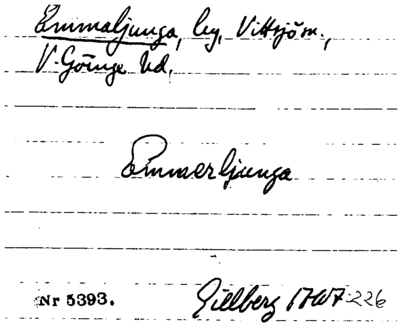 Emmaljunga, by, Vittsjö sn.,
V. Göinge hd.
Emmerljunga
Nr 5393. Gillberg 1767 226